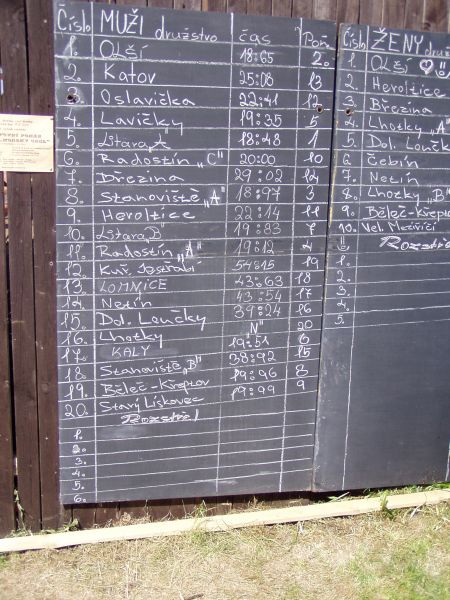 Číslo MUŽI družstvo čas Poř.
1. OLŠÍ 18:65 2.
2. Katov 25:08 13
3. Oslavička 22:41
4. Lavičky 19:35 5
5. Lstara A 18:48 1
6. Radostín "C" 20:00 10
7. Březina 29:02
8. Stanoviště "A" 18:97 3
9. Heroltice 22:14 11
10. Lstara B 19:83 7
11. Radostín "A" 19:12 4
12. Kuř. Jestřabí 54:15 19
13. LOMNICE 43:63 18
14. Netín 43:54 17
15. Dol. Loučky 39:24 16
16. Lhotky "N" 20
17. KALY 19:51 6
18. Stanoviště "B" 38:92 15
19. Běleč-Křeptov 19:96 8
20. Starý Lískovec 19:99 9
Rozstřel
1.
2.
3.
4.
5.
6.
Čísl. ŽENY druž
1. OLŠÍ
2. Heroltice
3. Březina
4. Lhotky "A"
5. Dol. Loučk
6. Čebín
7. Netín
8. Lhotky "B"
9. Běleč-Křepto
10. Vel. Meziříčí
Rozstře
1.
2.
3.
4.
5.